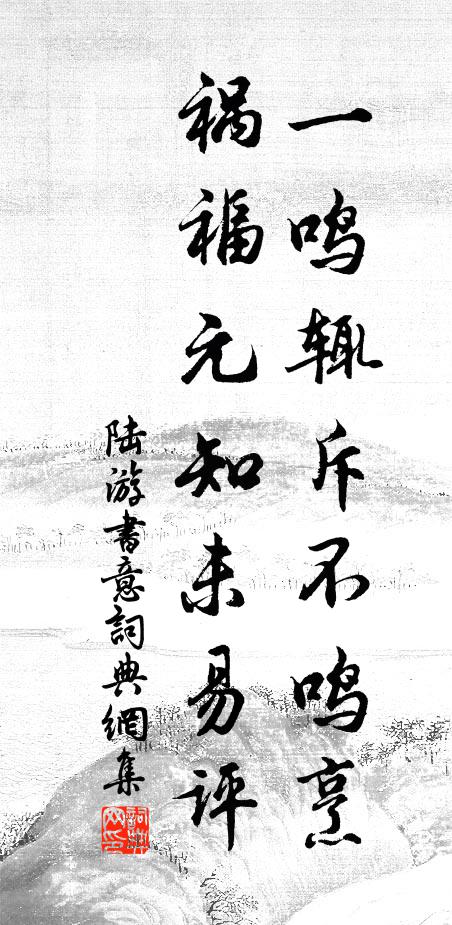 一鸣辄斥不鸣烹
祸福元知未易评
陆游书意詞典網集